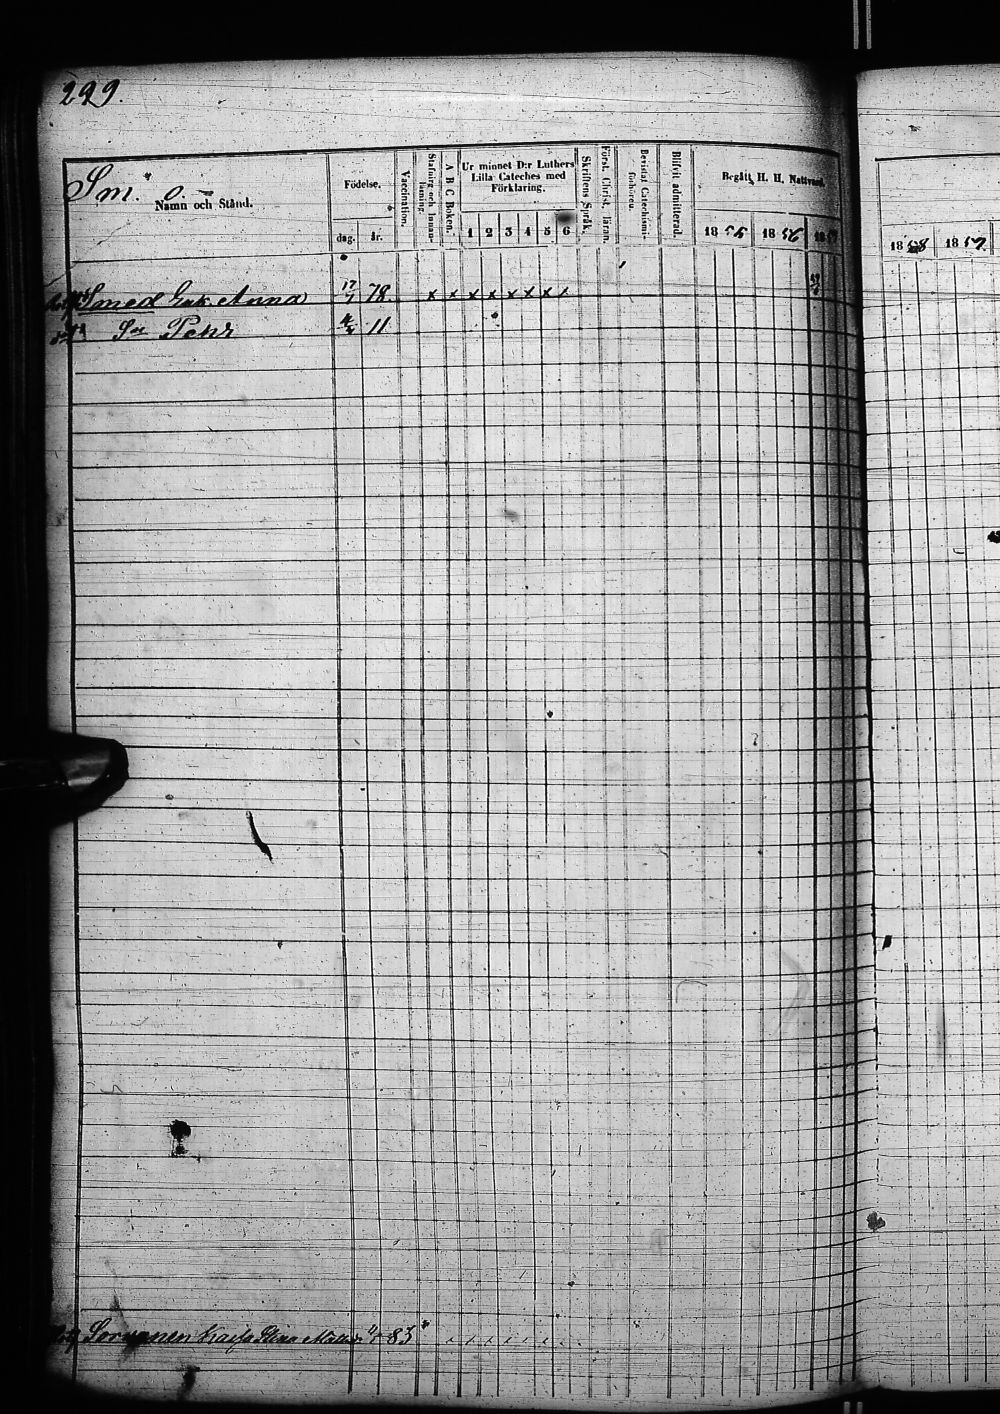 299.
Sm. o.
Namn och Stånd.
Födelse.
dag. år.
Vaccination.
Stafning och Innan-läsning.
A B C Boken.
Ur minnet D:r Luthers
Lilla Cateches med
Förklaring.
1 2 3 4 5 6
Skriftens Språk.
Först. Christ. läran.
Bevistat Catechismi-förhören.
Blifvit admitterad.
Begått H. H. Nattvard.
18 55 18 56 18 57
18 58 18 59
Smed Enk. Anna 17/7 78 x x x x x x x
Sn Pehr 11
Sorvanen 83